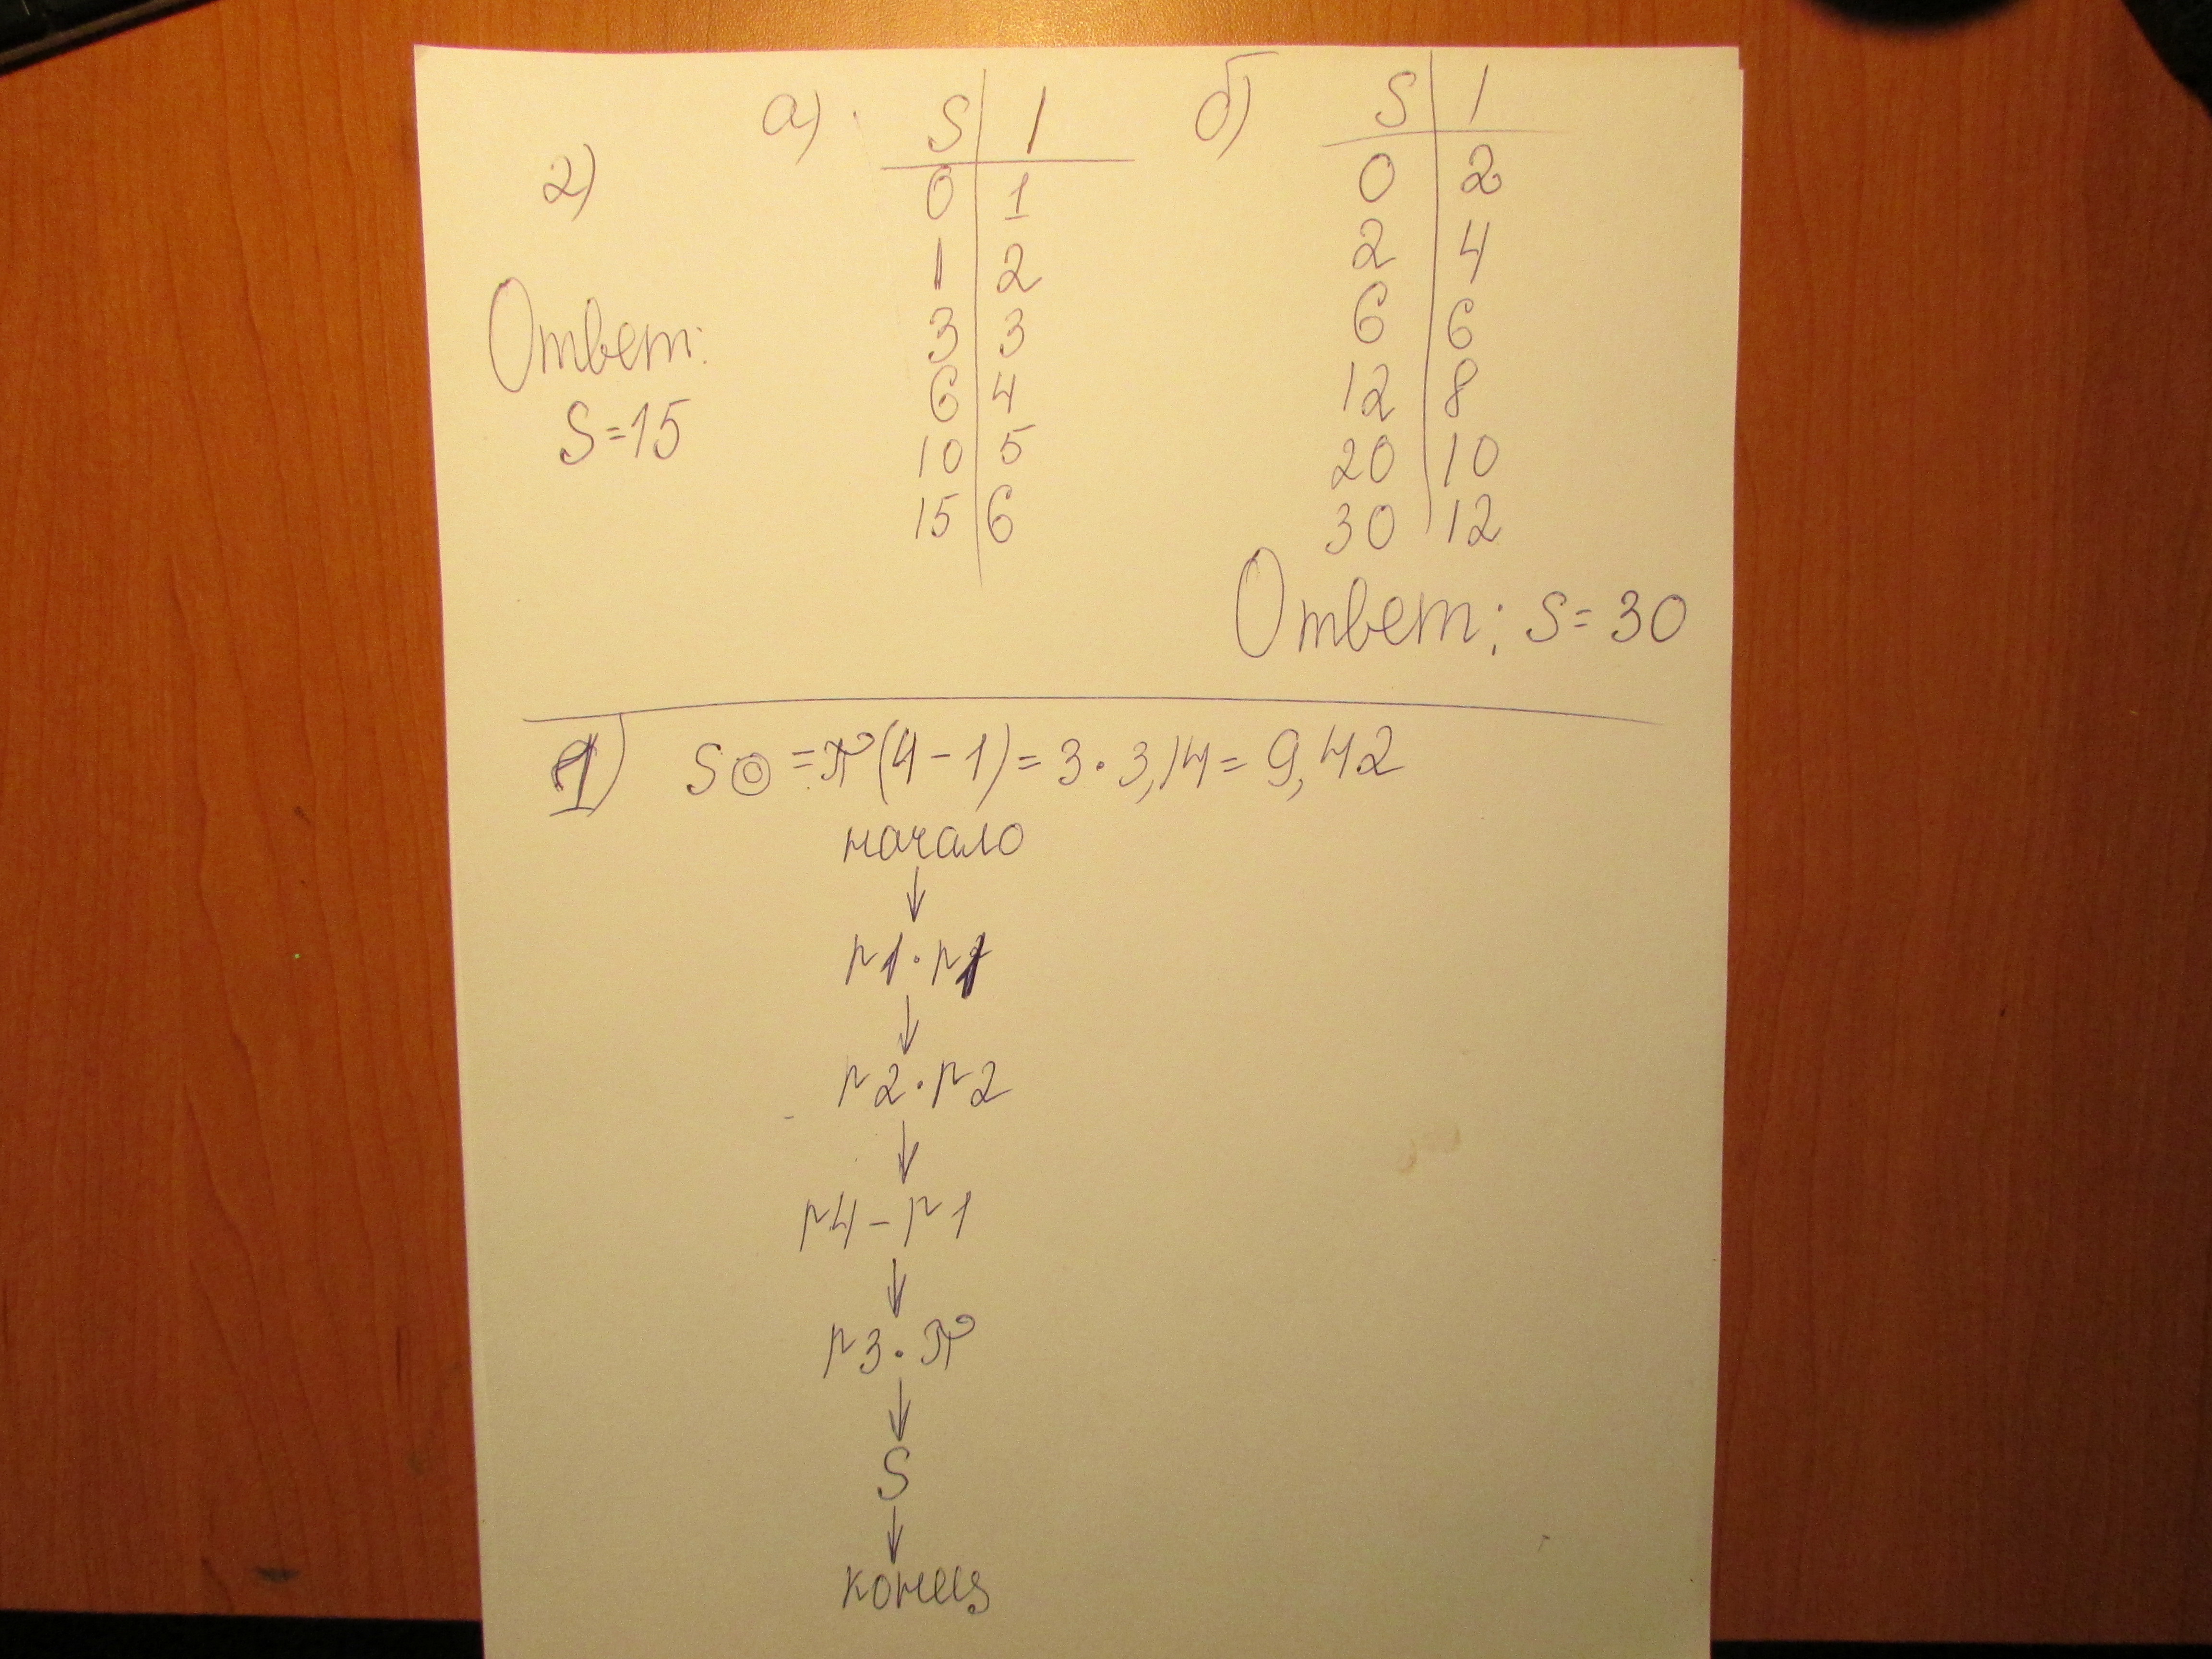 2)
Ответ:
S=15
а)
S | 1
0 | 1
1 | 2
3 | 3
6 | 4
10 | 5
15 | 6
б)
S | 1
0 | 2
2 | 4
6 | 6
12 | 8
20 | 10
30 | 12
Ответ: S=30
1) S◎ = π(4-1) = 3·3,14 = 9,42
начало
↓
r1·r1
↓
r2·r2
↓
r4-r1
↓
r3·π
↓
S
↓
конец